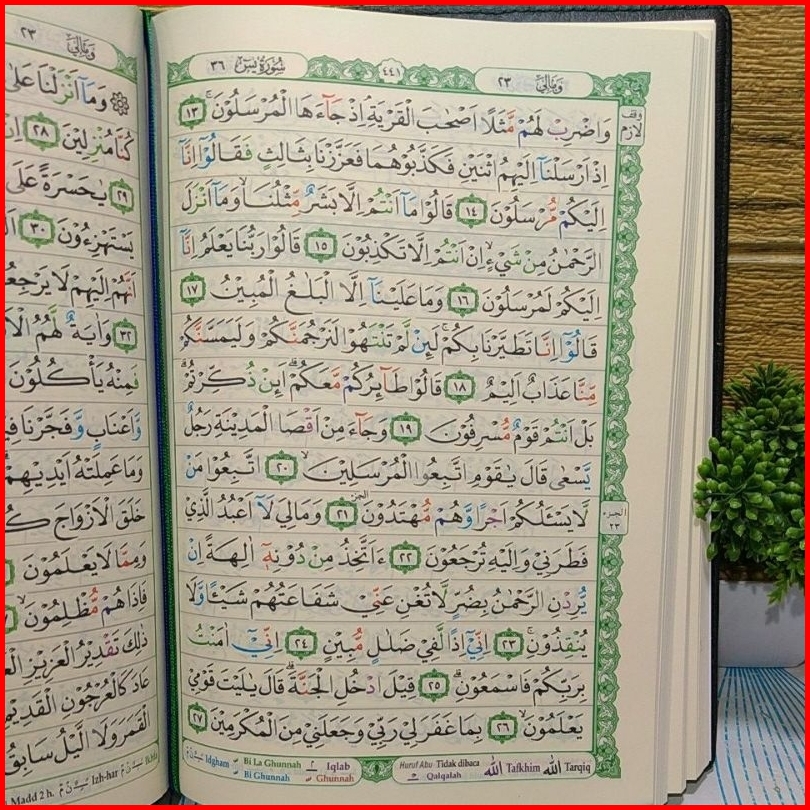 سُوْرَةُ يٰسٓ ٣٦
٤٤١
وَمَالِيَ ٢٣
وَاضْرِبْ لَهُمْ مَّثَلًا اَصْحٰبَ الْقَرْيَةِۘ اِذْ جَاۤءَهَا الْمُرْسَلُوْنَۚ ١٣
اِذْ اَرْسَلْنَآ اِلَيْهِمُ اثْنَيْنِ فَكَذَّبُوْهُمَا فَعَزَّزْنَا بِثَالِثٍ فَقَالُوْٓا اِنَّآ
اِلَيْكُمْ مُّرْسَلُوْنَ ١٤ قَالُوْا مَآ اَنْتُمْ اِلَّا بَشَرٌ مِّثْلُنَاۙ وَمَآ اَنْزَلَ
الرَّحْمٰنُ مِنْ شَيْءٍۙ اِنْ اَنْتُمْ اِلَّا تَكْذِبُوْنَ ١٥ قَالُوْا رَبُّنَا يَعْلَمُ اِنَّآ
اِلَيْكُمْ لَمُرْسَلُوْنَ ١٦ وَمَا عَلَيْنَآ اِلَّا الْبَلٰغُ الْمُبِيْنُ ١٧
قَالُوْٓا اِنَّا تَطَيَّرْنَا بِكُمْۚ لَىِٕنْ لَّمْ تَنْتَهُوْا لَنَرْجُمَنَّكُمْ وَلَيَمَسَّنَّكُمْ
مِّنَّا عَذَابٌ اَلِيْمٌ ١٨ قَالُوْا طَاۤىِٕرُكُمْ مَّعَكُمْۗ اَىِٕنْ ذُكِّرْتُمْۗ
بَلْ اَنْتُمْ قَوْمٌ مُّسْرِفُوْنَ ١٩ وَجَاۤءَ مِنْ اَقْصَا الْمَدِيْنَةِ رَجُلٌ
يَّسْعٰى قَالَ يٰقَوْمِ اتَّبِعُوا الْمُرْسَلِيْنَۙ ٢٠ اتَّبِعُوْا مَنْ
لَّا يَسْـَٔلُكُمْ اَجْرًا وَّهُمْ مُّهْتَدُوْنَ ٢١ وَمَالِيَ لَآ اَعْبُدُ الَّذِيْ
فَطَرَنِيْ وَاِلَيْهِ تُرْجَعُوْنَ ٢٢ ءَاَتَّخِذُ مِنْ دُوْنِهٖٓ اٰلِهَةً اِنْ
يُّرِدْنِ الرَّحْمٰنُ بِضُرٍّ لَّا تُغْنِ عَنِّيْ شَفَاعَتُهُمْ شَيْـًٔا وَّلَا
يُنْقِذُوْنِۚ ٢٣ اِنِّيْٓ اِذًا لَّفِيْ ضَلٰلٍ مُّبِيْنٍ ٢٤ اِنِّيْٓ اٰمَنْتُ
بِرَبِّكُمْ فَاسْمَعُوْنِۗ ٢٥ قِيْلَ ادْخُلِ الْجَنَّةَۗ قَالَ يٰلَيْتَ قَوْمِيْ
يَعْلَمُوْنَۙ ٢٦ بِمَا غَفَرَ لِيْ رَبِّيْ وَجَعَلَنِيْ مِنَ الْمُكْرَمِيْنَ ٢٧
وقف لازم
الجزء ٢٣
Idgham Bi La Ghunnah Bi Ghunnah Iqlab Ghunnah Huruf Abu Tidak dibaca Qalqalah الله Tafkhim الله Tarqiq
وَمَالِيَ ٢٣
وَمَآ اَنْزَلْنَا عَلٰى
كُنَّا مُنْزِلِيْنَ ٢٨
٢٩ يٰحَسْرَةً عَلَى
يَسْتَهْزِءُوْنَ ٣٠
اَنَّهُمْ اِلَيْهِمْ لَا
٣٢ وَاٰيَةٌ لَّهُمُ
فَمِنْهُ يَأْكُلُوْنَ
وَّاَعْنَابٍ وَّفَجَّرْنَا
وَمَا عَمِلَتْهُ اَيْدِيْهِمْ
خَلَقَ الْاَزْوَاجَ
وَمِمَّا لَا يَعْلَمُوْنَ
فَاِذَا هُمْ مُّظْلِمُوْنَۙ
ذٰلِكَ تَقْدِيْرُ الْعَزِيْزِ
عَادَ كَالْعُرْجُوْنِ الْقَدِيْمِ
الْقَمَرَ وَلَا الَّيْلُ سَابِقُ
Madd 2 h. Izh-har